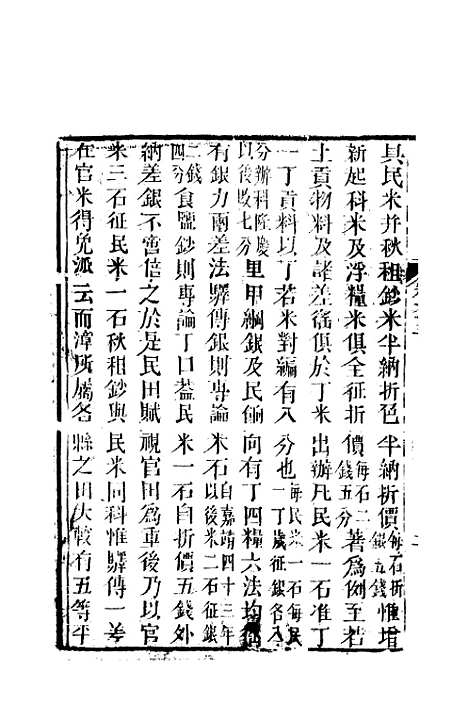 具民米幷秋租鈔米半納折色半納折價每石折銀五錢惟增
新起科米及浮糧米俱全征折價每石二錢五分著爲例至若
土貢物料及諸差徭俱於丁米出辦凡民米一石准丁
一丁貢料以丁若米對編有八分也每民米一石每民一丁歲征銀各八
分辦料隆慶以後改七分里甲綱銀及民偷向有丁四糧六法均徭
有銀力兩差法驛傳銀則專論米石自嘉靖四十三年以後米二石征銀
二錢四分食鹽鈔則專論丁口葢民米一石自折價五錢外
納差銀不啻倍之於是民田賦視官田爲重後乃以官
米三石征民米一石秋租鈔與民米同科惟驛傳一差
在官米得免派云而漳所屬各縣之田大較有五等平